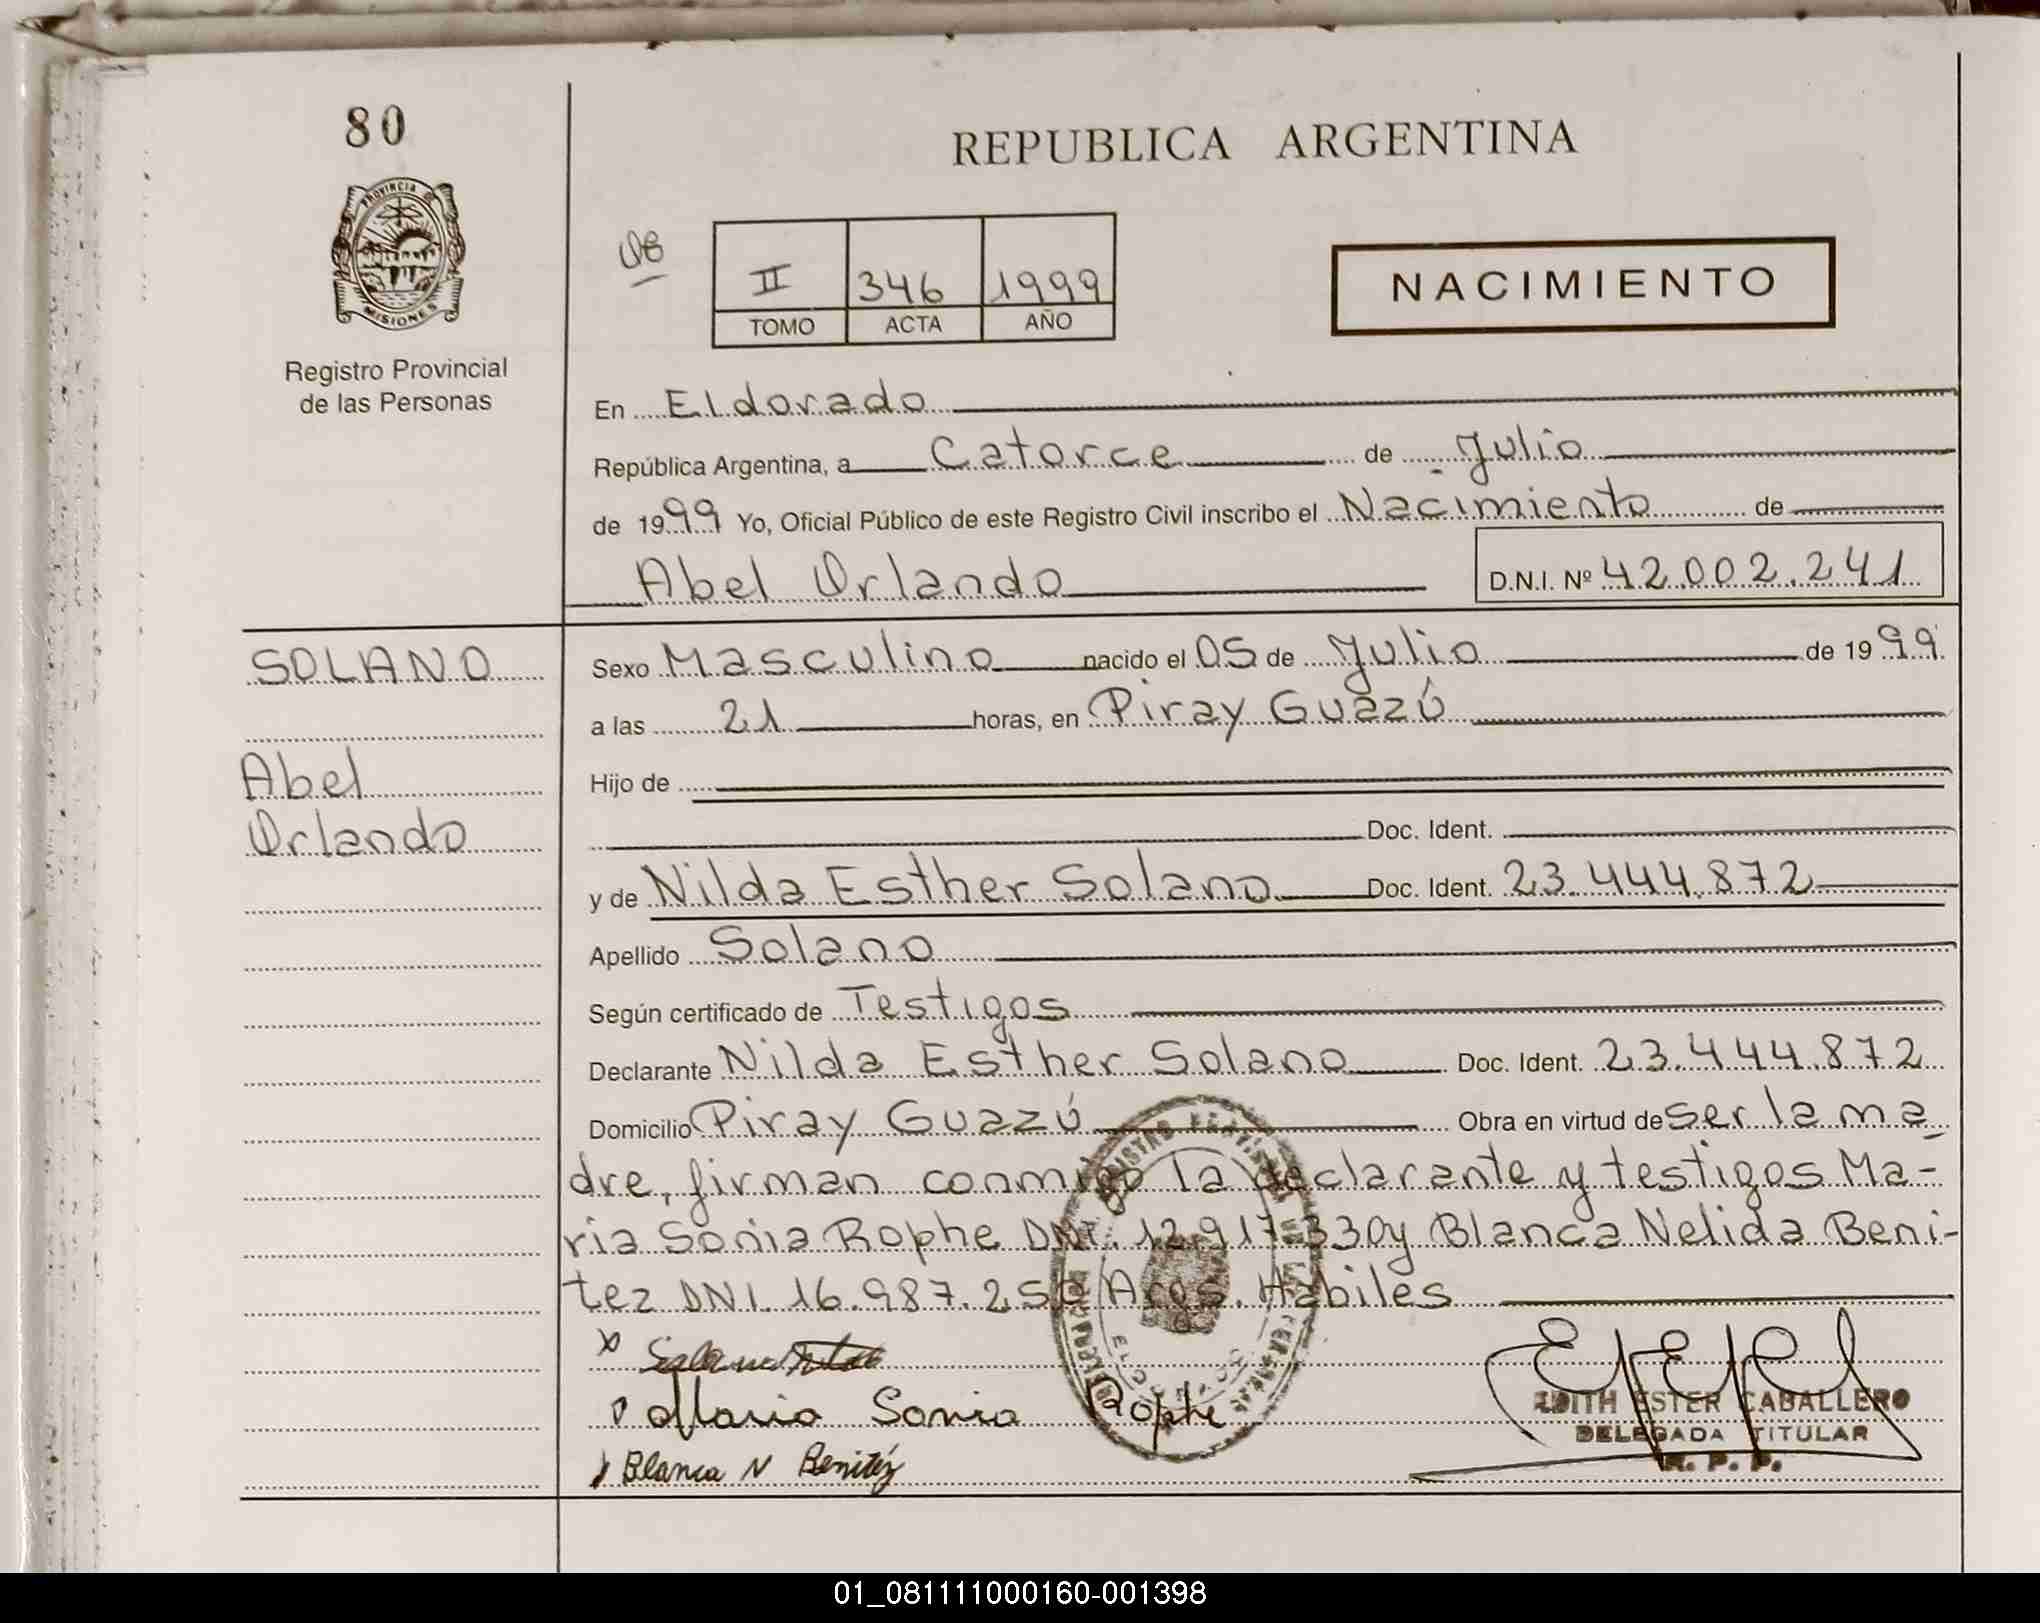 80
REPUBLICA ARGENTINA
PROVINCIA DE
MISIONES
Registro Provincial
de las Personas
II 346 1999
TOMO ACTA AÑO
NACIMIENTO
En Eldorado
República Argentina, a Catorce de Julio
de 1999 Yo, Oficial Público de este Registro Civil inscribo el Nacimiento de
Abel Orlando D.N.I. Nº 42.002.241
SOLANO
Abel
Orlando
Sexo Masculino nacido el 05 de Julio de 1999
a las 21 horas, en Piray Guazú
Hijo de
Doc. Ident.
y de Nilda Esther Solano Doc. Ident. 23.444.872
Apellido Solano
Según certificado de Testigos
Declarante Nilda Esther Solano Doc. Ident. 23.444.872
Domicilio Piray Guazú Obra en virtud de ser la ma
dre, firman conmigo la declarante y testigos Ma-
ria Sonia Rophe DNI. 12.917.330 y Blanca Nelida Beni-
tez DNI. 16.987.25 Habiles
Maria Sonia Rophe
Blanca N Benitéz
EDITH ESTER CABALLERO
DELEGADA TITULAR
R. P. P.
01_081111000160-001398